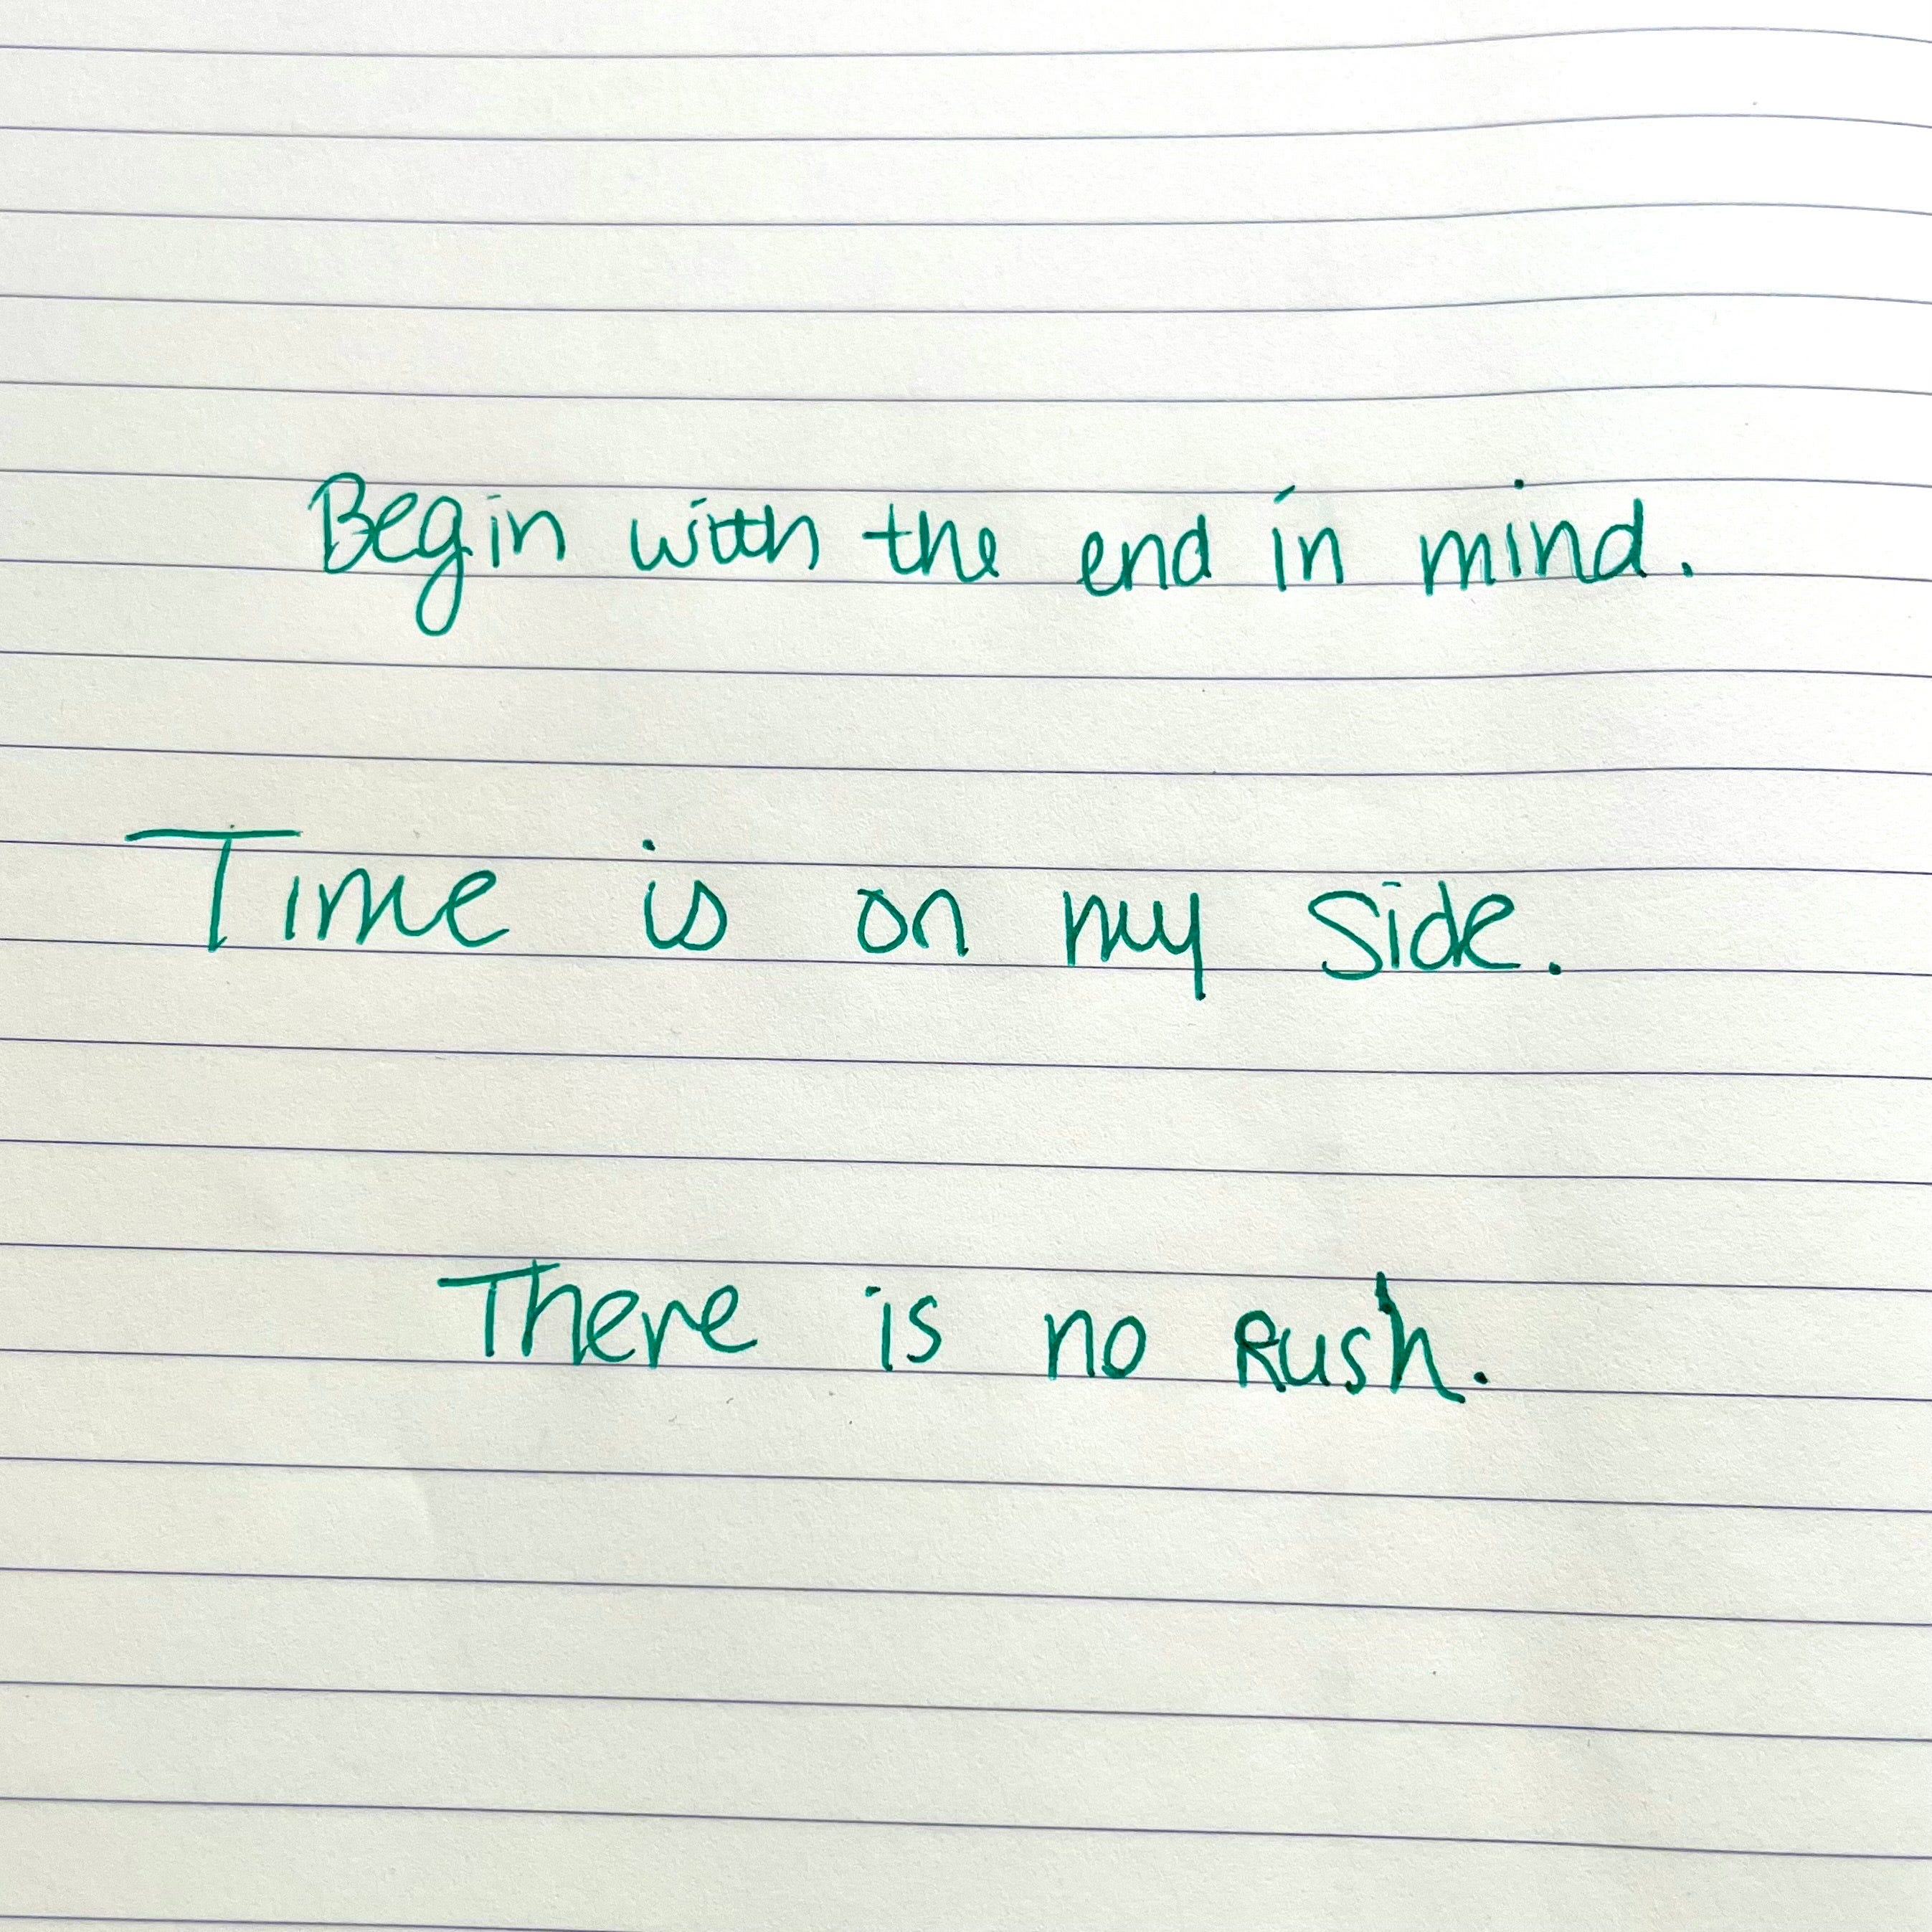 Begin with the end in mind.
Time is on my side.
There is no Rush.